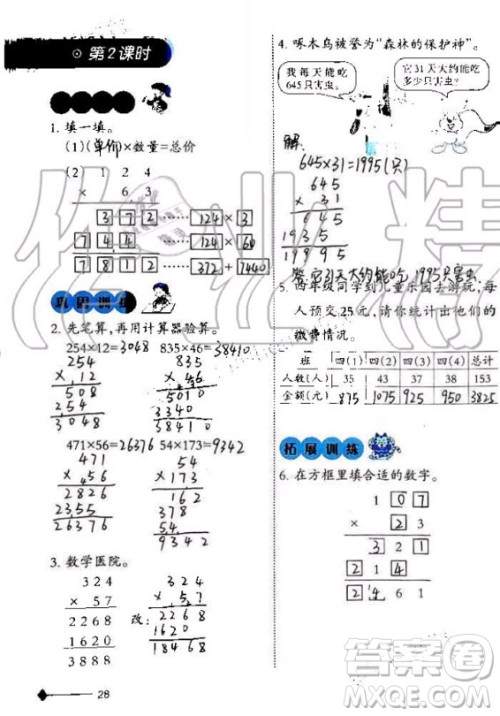 第2课时
1. 填一填。
(1)(单价)×数量=总价
(2) 1 2 4
× 6 3
3 7 2 …… 124 × 3
7 4 4 …… 124 × 60
7 8 1 2 …… 372 + 7440
巩固训练
2. 先笔算，再用计算器验算。
254×12=3048 835×46=38410
254
× 12
508
254
3048
835
× 46
5010
3340
38410
471×56=26376 54×173=9342
471
× 56
2826
2355
26376
54
×173
162
378
54
9342
3. 数学医院。
3 2 4
× 5 7
2 2 6 8
1 6 2 0
3 8 8 8
改：
324
× 57
2268
1620
18468
28
4. 啄木鸟被誉为“森林的保护神”。
我每天能吃
645只害虫。
它31天大约能吃
多少只害虫？
解：
645×31=19995(只)
645
× 31
645
1935
19995
答：它31天大约能吃 19995只害虫
5. 四年级同学到儿童乐园去游玩，每
人预交25元，请你统计出他们的
缴费情况。
班 四(1) 四(2) 四(3) 四(4) 合计
人数(人) 35 43 37 38 153
金额(元) 875 1075 925 950 3825
拓展训练
6. 在方框里填合适的数字。
1 0 7
× 2 3
3 2 1
2 1 4
2 4 6 1
答案圈
MXQE.COM
作业精